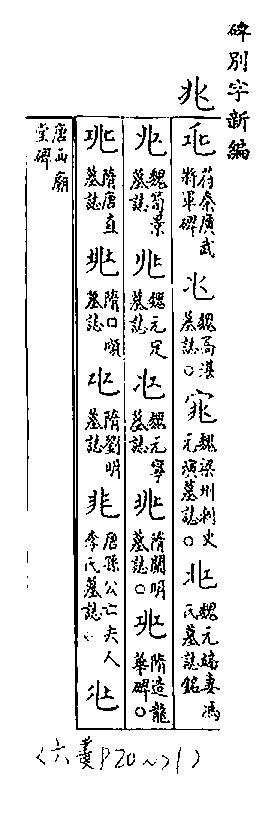 碑別字新編
兆
𠧞 苻秦廣武將軍碑 兆 魏高湛墓誌○ 窕 魏梁州刺史元演墓誌○ 兆 魏元端妻馮氏墓誌銘
兆 魏荀景墓誌 兆 魏元定墓誌 兆 魏元寧墓誌 兆 隋關明墓誌○ 兆 隋造龍華碑○
兆 隋唐直墓誌 兆 隋口順墓誌 兆 隋劉明墓誌 兆 唐孫公亡夫人李氏墓誌○ 兆
唐西廟堂碑
〈六畫P20~21〉